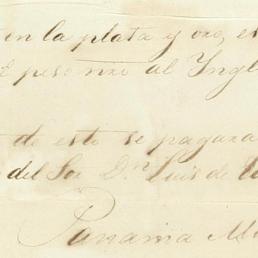 en la plata y oro, es
peso nxo al Yngl
de esto se pagara
del Sor Dn Luis de
Panama M